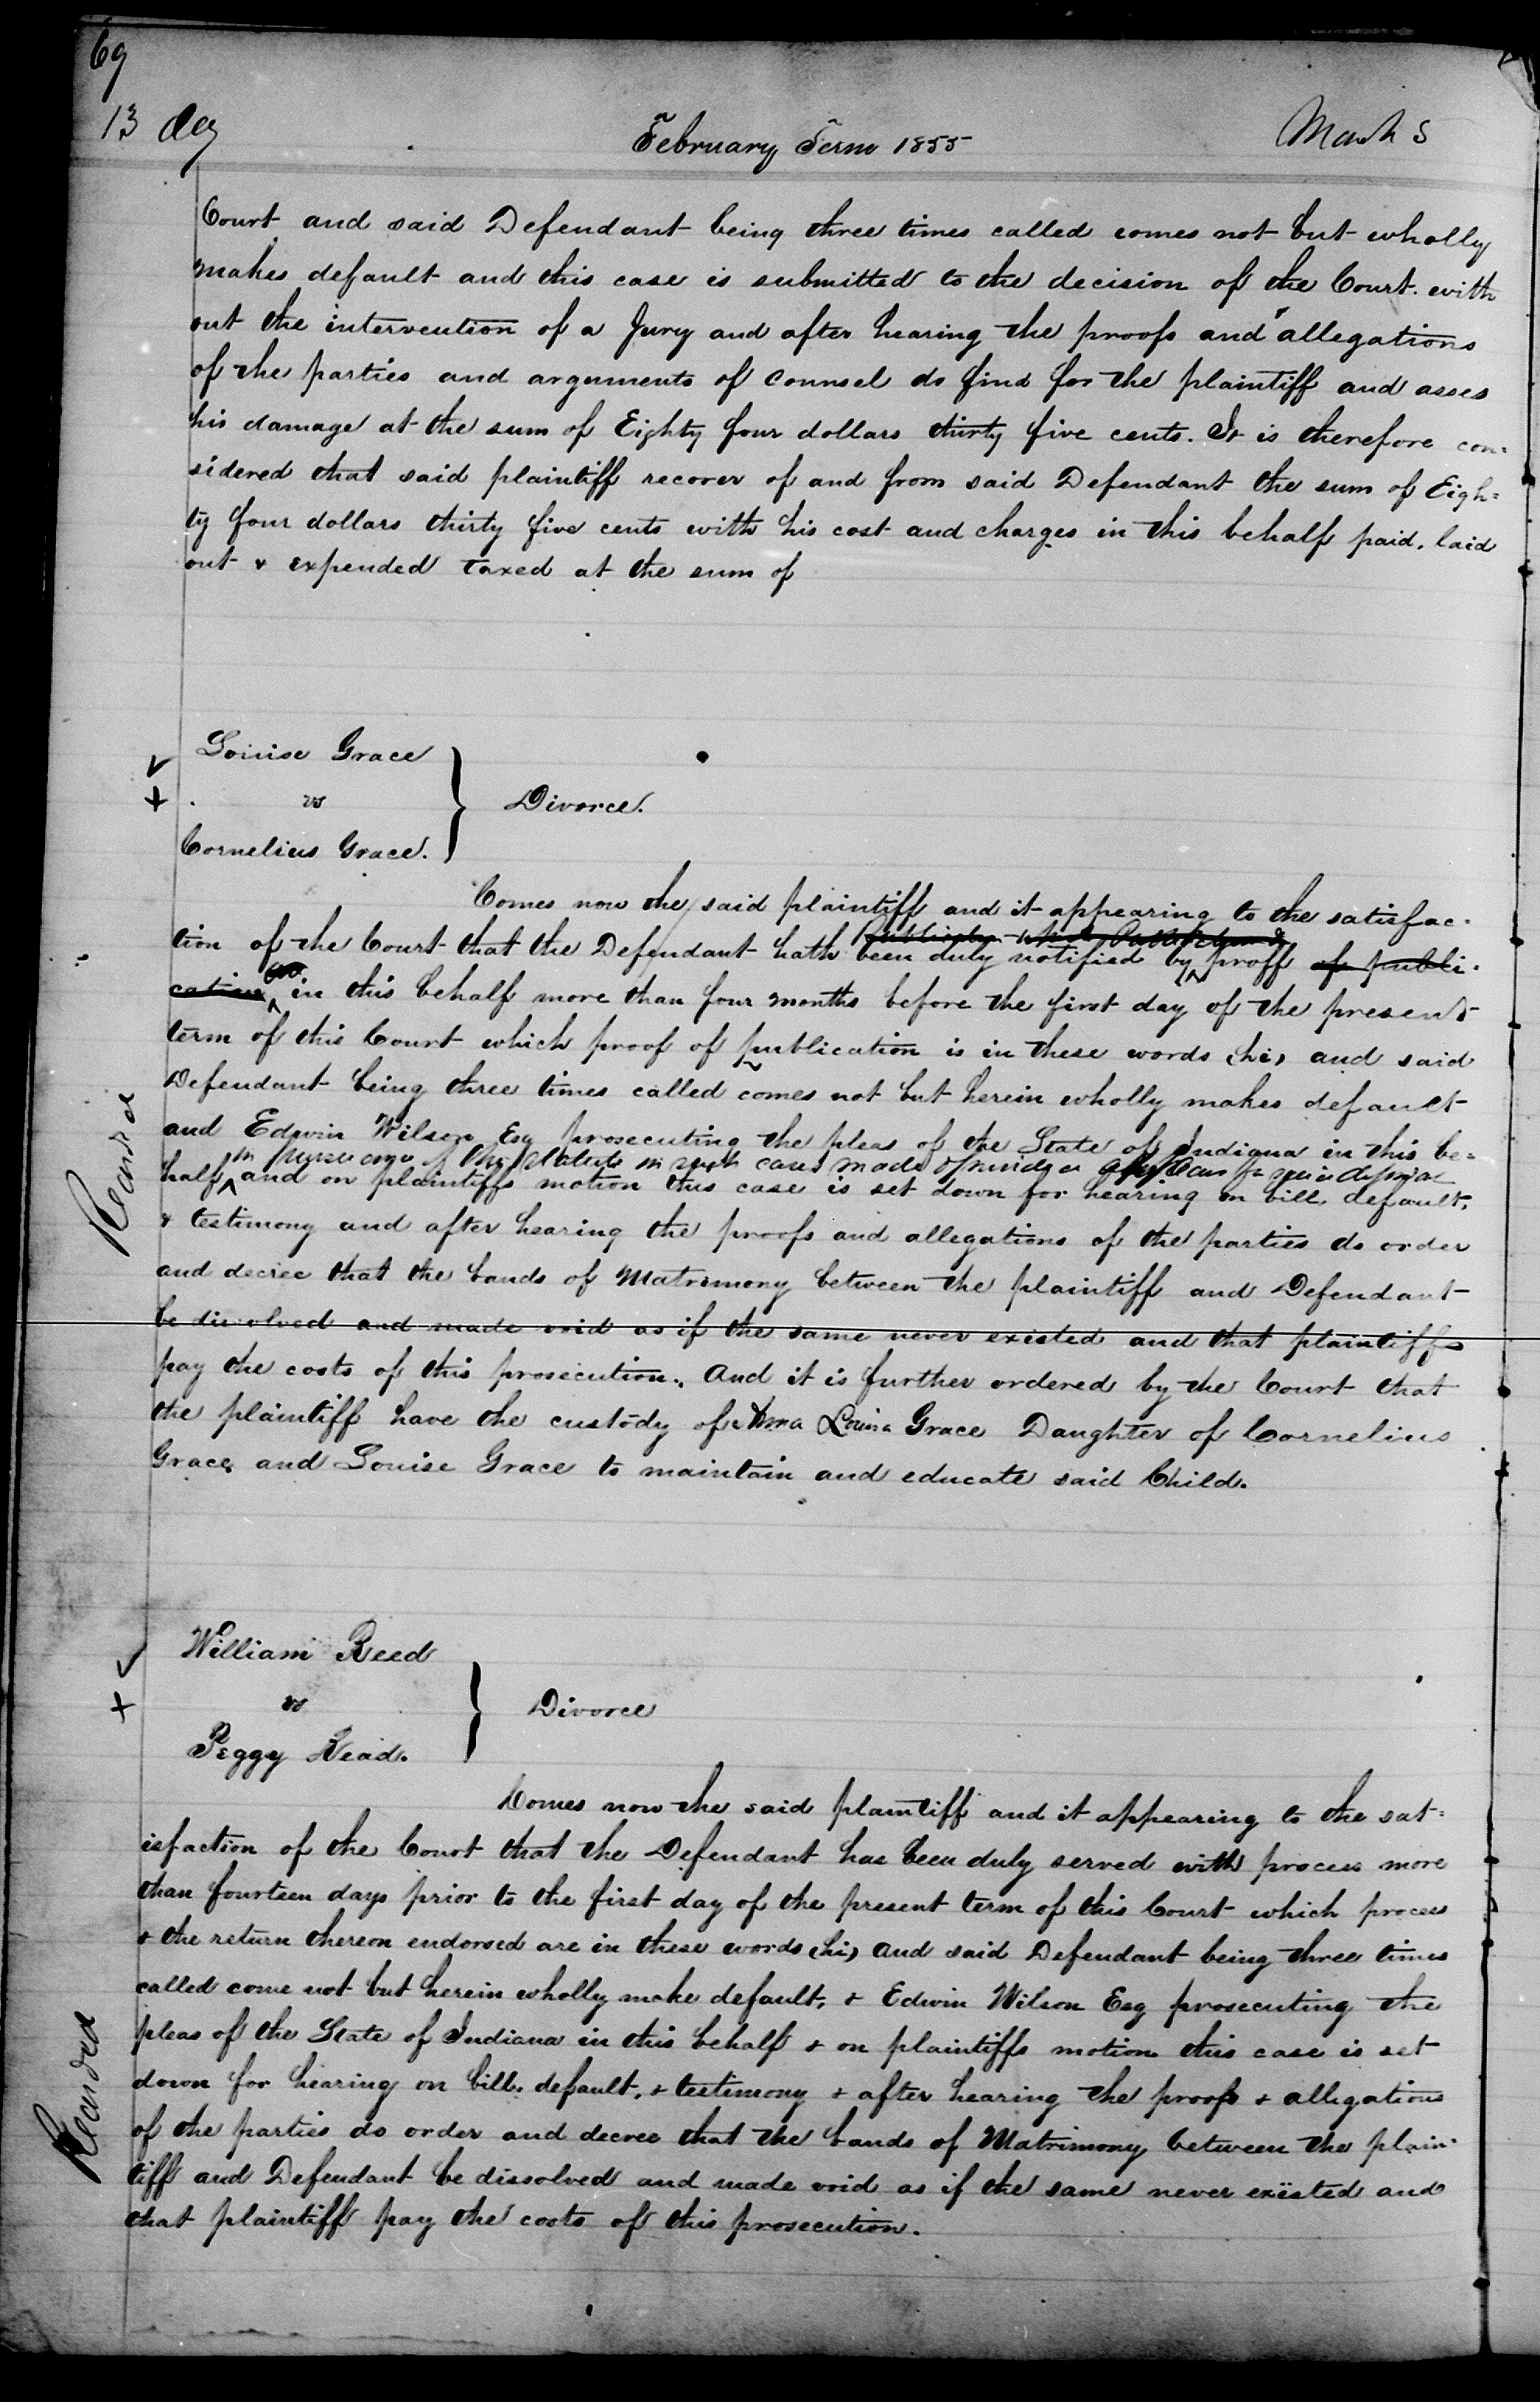 69
13 day February Term 1855 March 5
Court and said Defendant being three times called comes not but wholly
makes default and this case is submitted to the decision of the Court. with
out the intervention of a Jury and after hearing the proofs and allegations
of the parties and arguments of counsel do find for the plaintiff and asses
his damage at the sum of Eighty four dollars thirty five cents. It is therefore con=
sidered that said plaintiff recover of and from said Defendant the sum of Eigh=
ty four dollars thirty five cents with his cost and charges in this behalf paid, laid
out & expended taxed at the sum of
Louise Grace
vs
Cornelius Grace.
Divorce.
Comes now the said plaintiff and it appearing to the satisfac-
tion of the Court that the Defendant hath been duly notified by proff of publi-
cation in this behalf more than four months before the first day of the present
term of this Court which proof of publication is in these words (hi) and said
Defendant being three times called comes not but herein wholly makes default
Recorded
and Edwin Wilson Esq prosecuting the pleas of the State of Indiana in this be=
in pursuance of the Statute in such cases made & provided
half and on plaintiffs motion this case is set down for hearing on bill, default,
& testimony and after hearing the proofs and allegations of the parties do order
and decree that the bands of Matrimony between the plaintiff and Defendant
be dissolved and made void as if the same never existed and that plaintiff
pay the costs of this prosecution. And it is further ordered by the Court that
the plaintiff have the custody of Louisa Grace Daughter of Cornelius
Grace and Louise Grace to maintain and educate said Child.
William Reed
vs
Peggy Read.
Divorce
Comes now the said plaintiff and it appearing to the sat=
isfaction of the Court that the Defendant has been duly served with process more
than fourteen days prior to the first day of the present term of this Court which process
& the return thereon endorsed are in these words (hi) and said Defendant being three times
called come not but herein wholly make default, & Edwin Wilson Esq prosecuting the
Recorded
pleas of the State of Indiana in this behalf & on plaintiffs motion this case is set
down for hearing on bill, default, & testimony & after hearing the proofs & allegations
of the parties do order and decree that the bands of Matrimony between the plain-
tiff and Defendant be dissolved and made void as if the same never existed and
that plaintiff pay the costs of this prosecution.